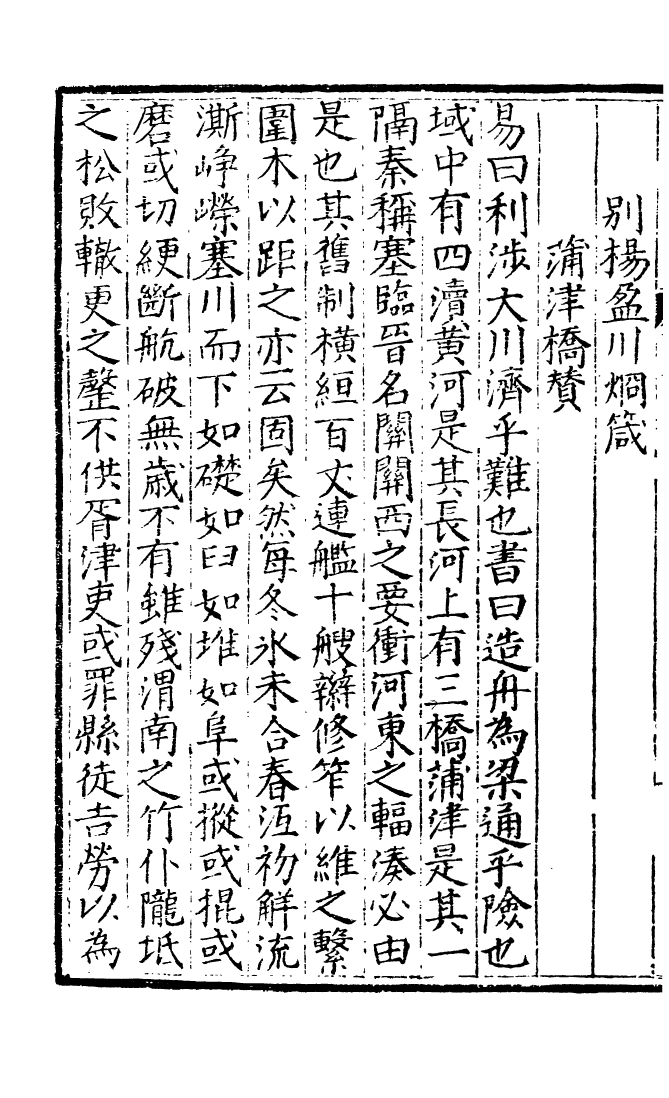 別楊盈川烱箴
蒲津橋贊
易曰利涉大川濟乎難也書曰造舟為梁通乎險也
域中有四瀆黃河是其長河上有三橋蒲津是其一
隔秦稱塞臨晉名關關西之要衝河東之輻湊必由
是也其舊制橫絙百丈連艦十艘辮修笮以維之繫
圍木以距之亦云固矣然每冬氷未合春沍初解流
澌崢嶸塞川而下如礎如臼如堆如阜或摐或掍或
磨或切綆斷航破無歲不有雖殘渭南之竹仆隴坻
之松敗轍更之罄不供胥津吏或罪縣徒告勞以為